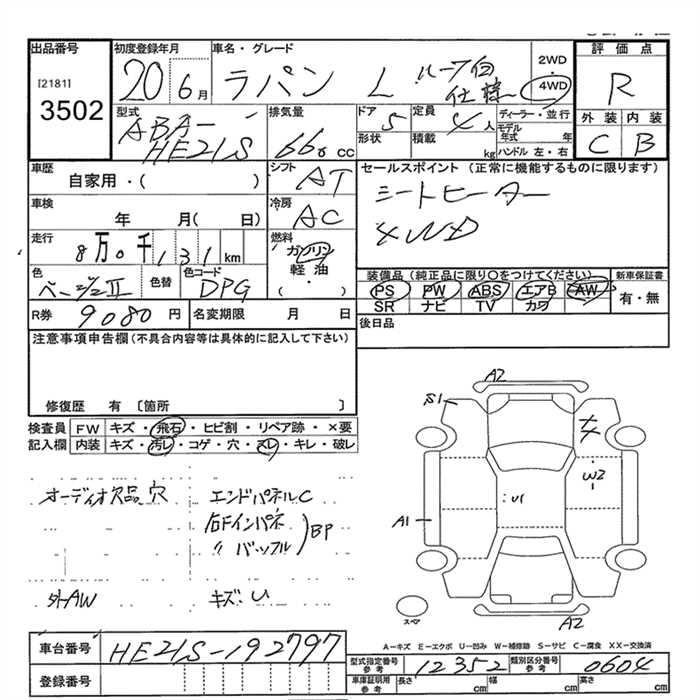 出品番号
[2181]
3502
初度登録年月
20 6月
車名・グレード
ラパン L ルーフ白
仕様
2WD
4WD
評価点
R
外装 内装
C B
型式
ABA-
HE21S
排気量
660 cc
ドア
5
定員
4人
形状
積載
kg
ディーラー・並行
モデル
年式 年
ハンドル 左・右
車歴
自家用・( )
シフト
AT
セールスポイント (正常に機能するものに限ります)
シートヒーター
4WD
車検
年 月( 日)
冷房
AC
走行
8万0千131km
燃料
ガソリン
軽油
・
( )
色
ベージュII
色替
色コード
DPG
装備品(純正品に限り○をつけてください)
PS PW ABS エアB AW
SR ナビ TV カワ
新車保証書
有・無
R券 9080 円
名変期限 月 日
後日品
注意事項申告欄(不具合等は具体的に記入して下さい)
修復歴 有 〔箇所 〕
検査員
記入欄
FW キズ・飛石・ヒビ割・リペア跡・×要
内装 キズ・汚レ・コゲ・穴・スレ・キレ・破レ
オーディオ欠品 穴
エンドパネルC
右Fインパネ
〃 バッフル
BP
外AW
キズ・U
A2
S1
W2
U1
A1
スペア
A2
A-キズ E-エクボ U-凹み W-補修跡 S-サビ C-腐食 XX-交換済
車台番号
HE21S-192797
登録番号
型式指定番号
参考
12352
類別区分番号
参考
0604
車庫証明用
参考
長さ cm
幅 cm
高さ cm